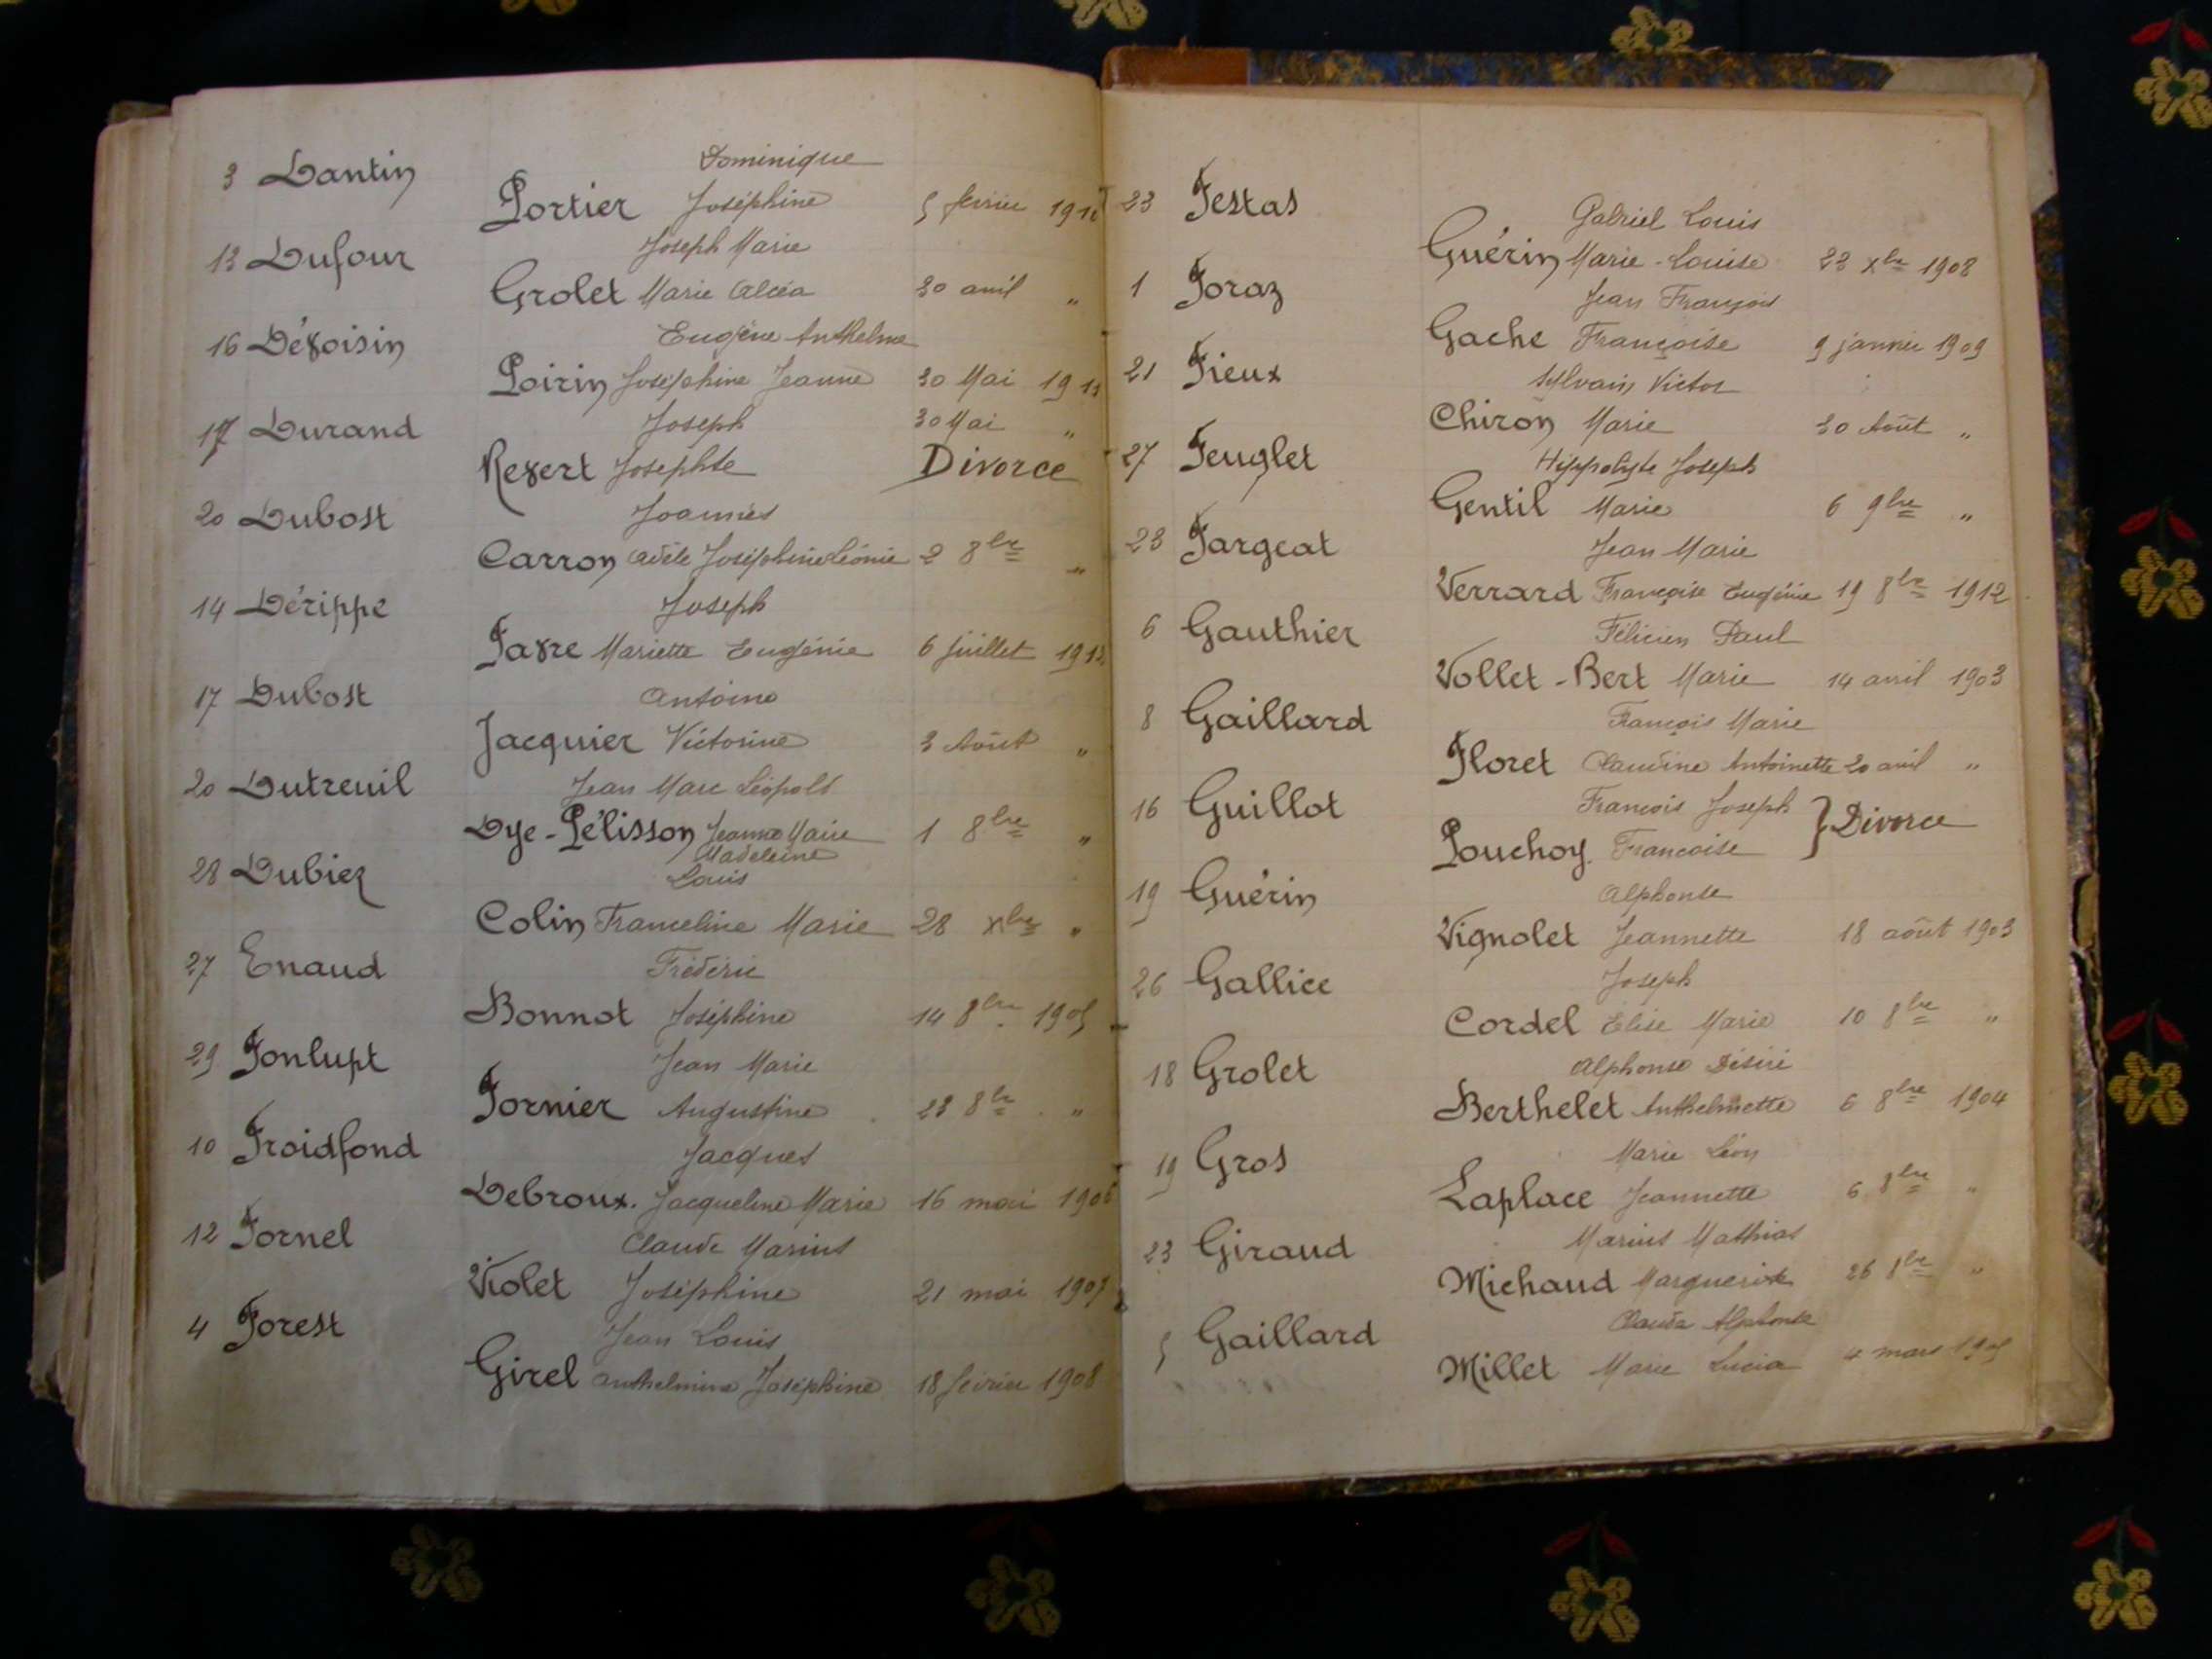 3 Dantin Dominique
Portier Joséphine 5 février
13 Dufour Joseph Marie
Grolet Marie Alcéa 30 avril "
16 Dévoisin Eugène Anthelme
Poirin Joséphine Jeanne 30 Mai
17 Durand Joseph 30 Mai "
Revert Josephte Divorce
20 Dubost Joannès
Carron Adèle Joséphine Léonie 2 8bre "
14 Dérippe Joseph
Favre Mariette Eugénie 6 Juillet
17 Dubost Antoine
Jacquier Victorine 3 Août "
20 Dutreuil Jean Marc Léopold
Dye-Pélisson Jeanne Marie 1 8bre "
Madeleine
28 Dubiez Louis
Colin Franceline Marie 28 xbre "
27 Enaud Frédéric
Bonnot Joséphine 14 8bre 1905
29 Fonlupt Jean Marie
Fornier Augustine 23 8bre "
10 Froidfond Jacques
Debroux. Jacqueline Marie 16 mai 1906
12 Fornel Claude Marius
Violet Joséphine 21 mai 1907
4 Forest Jean Louis
Girel Anthelmine Joséphine 18 février 1908
23 Festas Gabriel Louis
Guérin Marie-Louise 23 xbre 1908
1 Foraz Jean François
Gache Françoise 9 janvier 1909
21 Fieux Sylvain Victor
Chiron Marie 30 Août "
27 Feuglet Hippolyte Joseph
Gentil Marie 6 9bre "
23 Fargeat Jean Marie
Verrard Françoise Eugénie 19 8bre 1912
6 Gauthier Félicien Paul
Vollet-Bert Marie 14 avril 1903
8 Gaillard François Marie
Floret Claudine Antoinette 20 avril "
16 Guillot François Joseph } Divorce
Pouchoy Francoise
19 Guérin Alphonse
Vignolet Jeannette 18 août 1903
26 Gallice Joseph
Cordel Elise Marie 10 8bre "
18 Grolet Alphonse Désiré
Berthelet Anthelmette 6 8bre 1904
19 Gros Marie Léon
Laplace Jeannette 6 8bre "
23 Giraud Marius Mathias
Michaud Marguerite 26 8bre "
5 Gaillard Claude Alphonse
Millet Marie Lucia 4 mars 1905